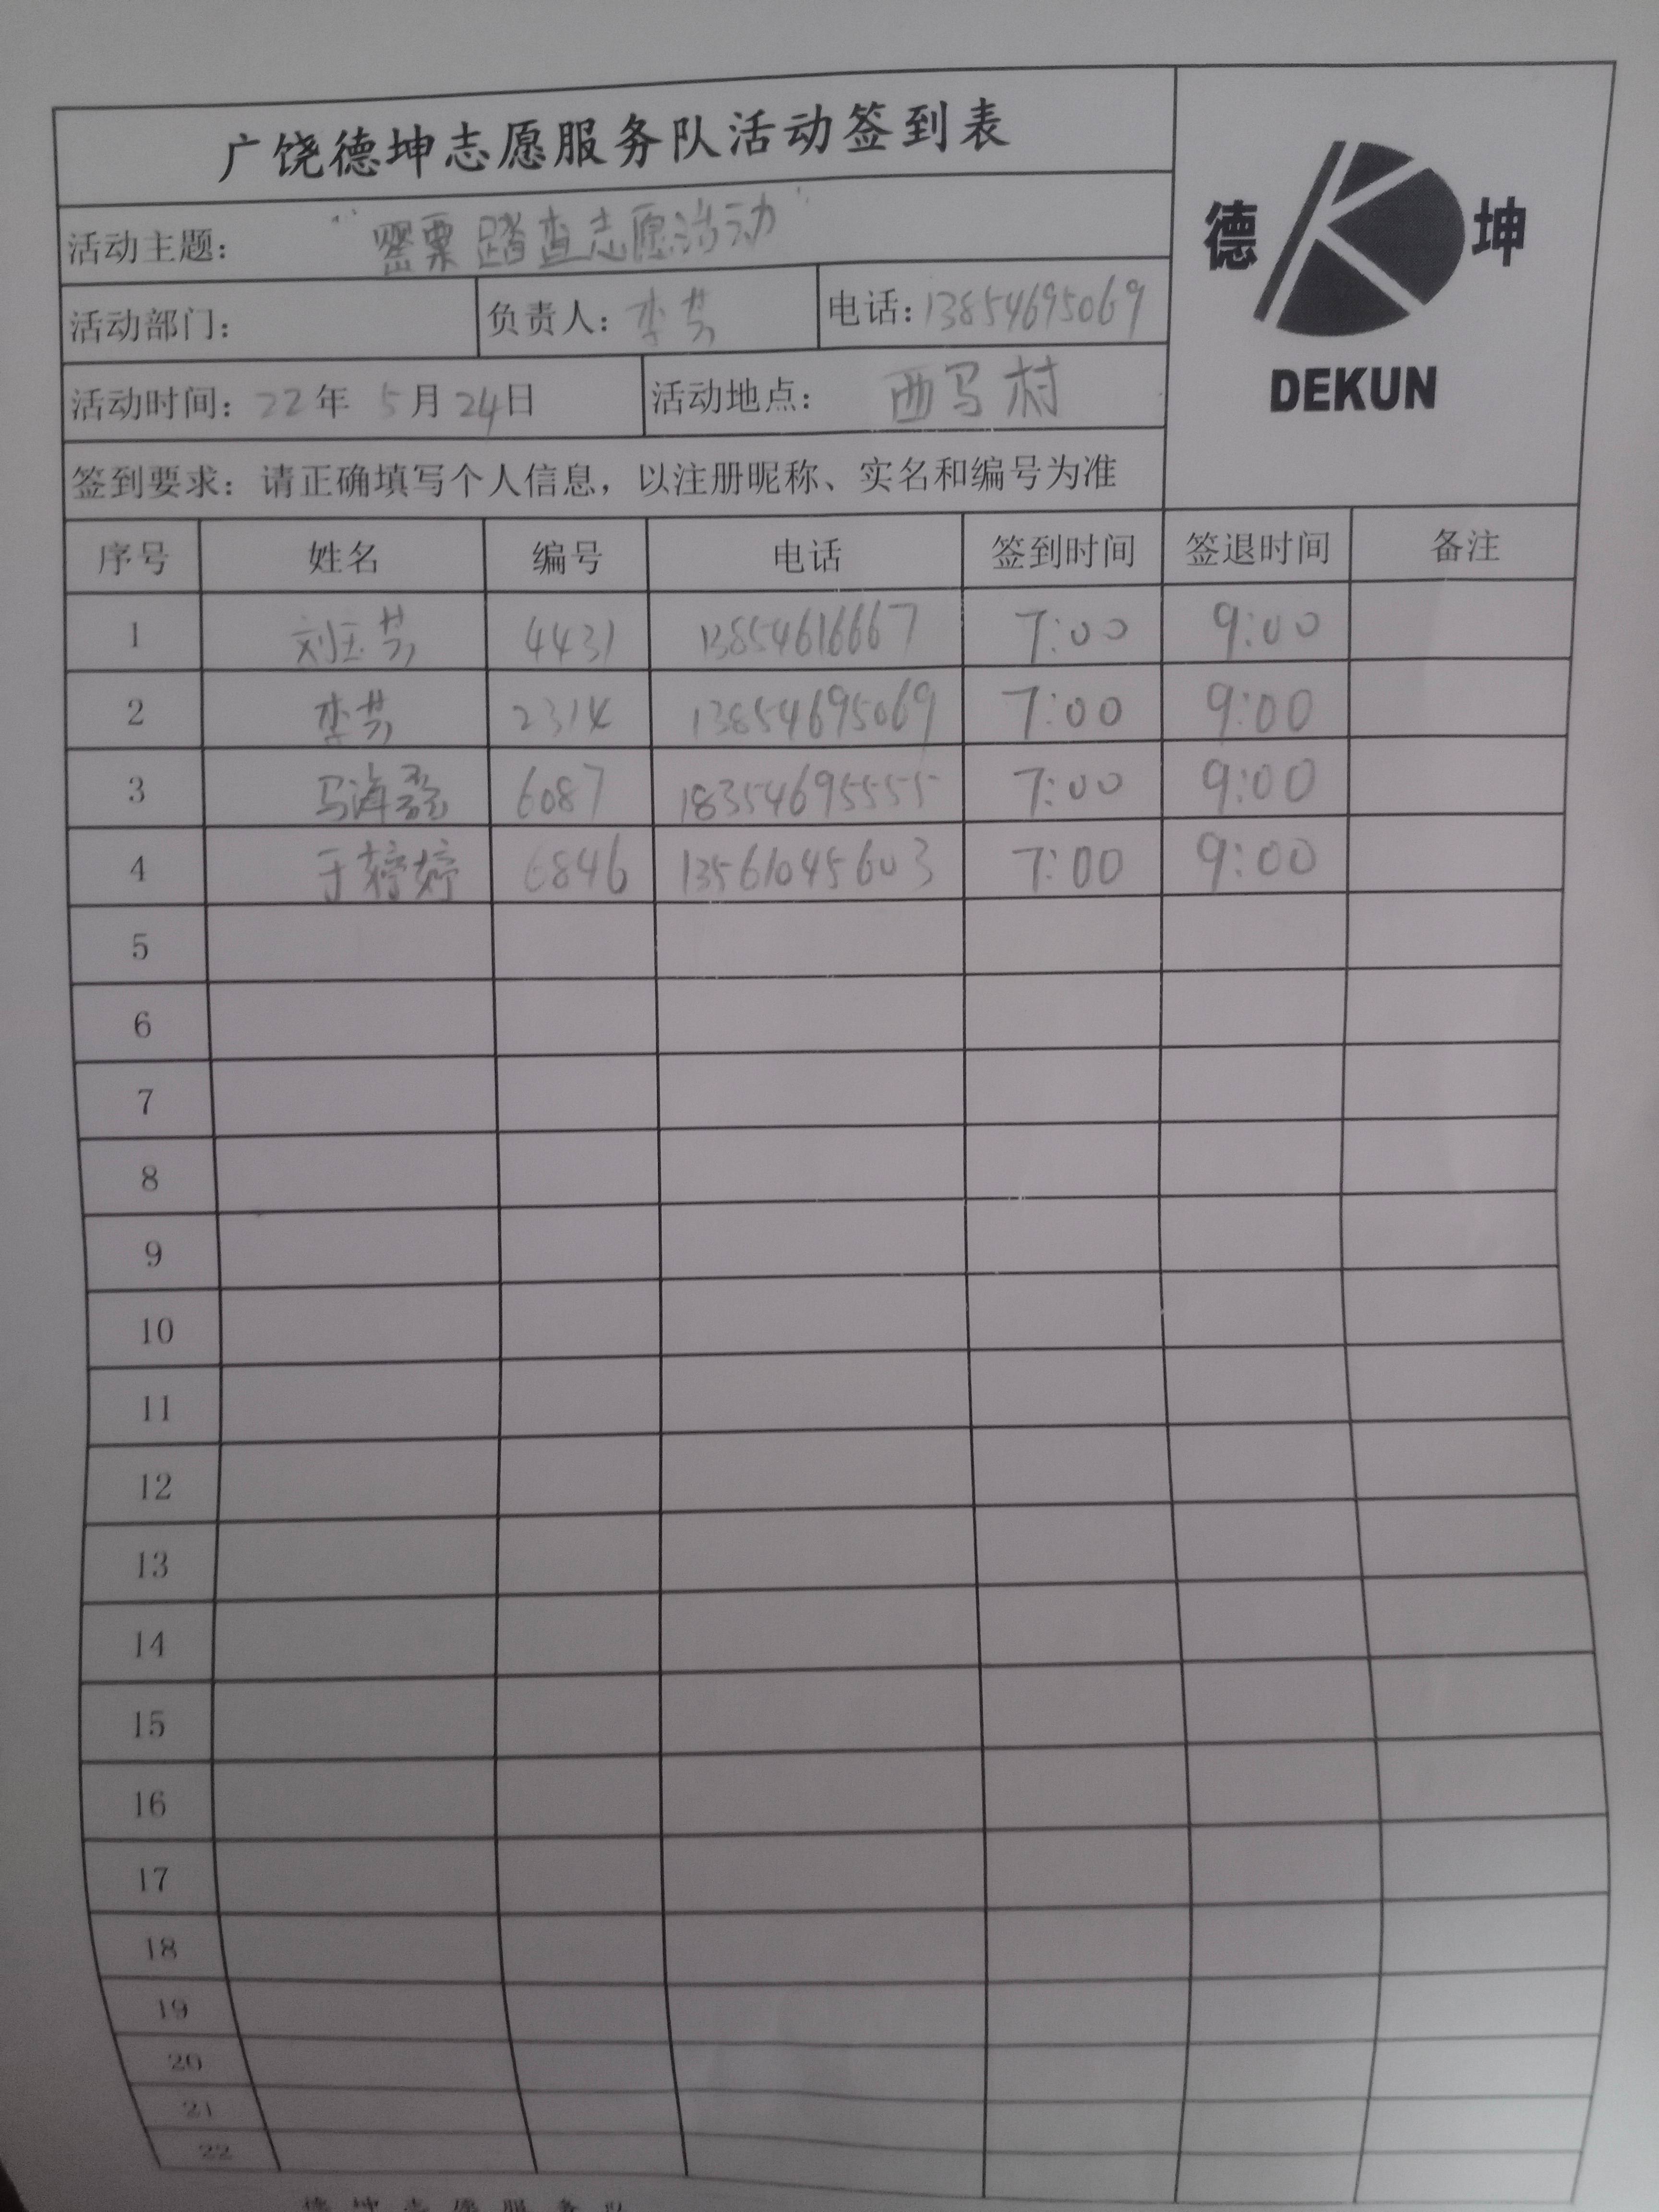 广饶德坤志愿服务队活动签到表
德 坤
DEKUN
活动主题： “罂粟踏查志愿活动”
活动部门： 负责人：李芳 电话：13854695069
活动时间：22年 5月24日 活动地点： 西马村
签到要求：请正确填写个人信息，以注册昵称、实名和编号为准
序号 姓名 编号 电话 签到时间 签退时间 备注
1 刘玉芳 4431 13854616667 7:00 9:00
2 李芳 2314 13854695069 7:00 9:00
3 马海 6087 18354695555 7:00 9:00
4 于婷婷 6846 13561045603 7:00 9:00
5
6
7
8
9
10
11
12
13
14
15
16
17
18
19
20
21
22
德坤志愿服务队